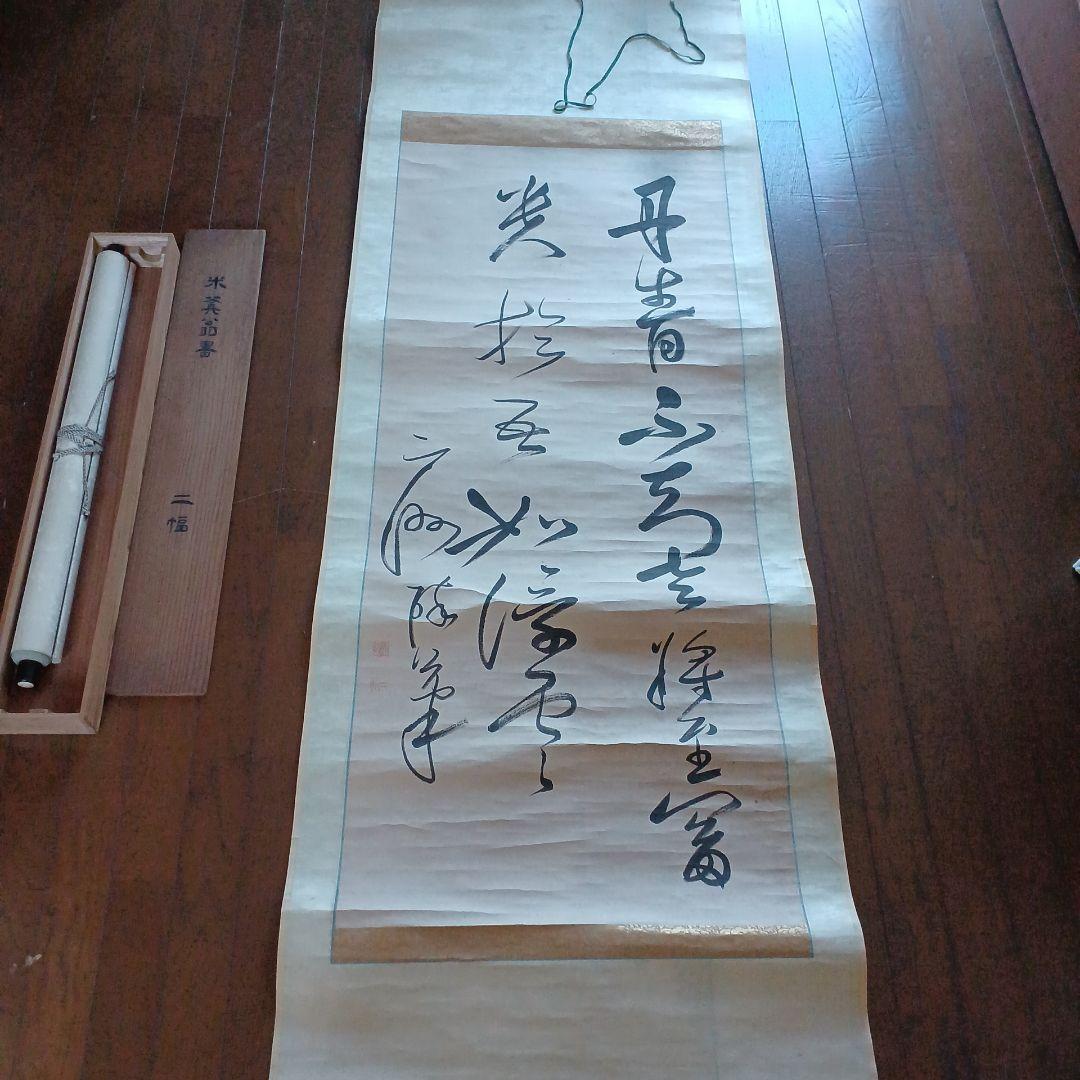 丹青不知老將至富
貴於吾如浮雲
醉筆
米翁書
二幅